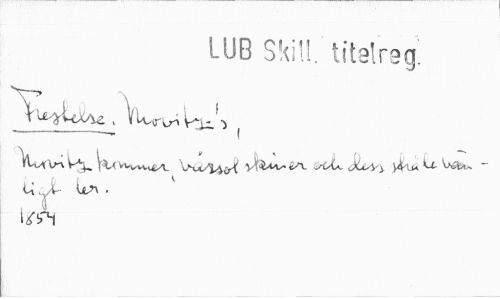 LUB Skill. titelreg.
Frestelse. Movitz's,
Movitz kommer, vårsol skiner och dess stråle vän-
ligt ler.
1854